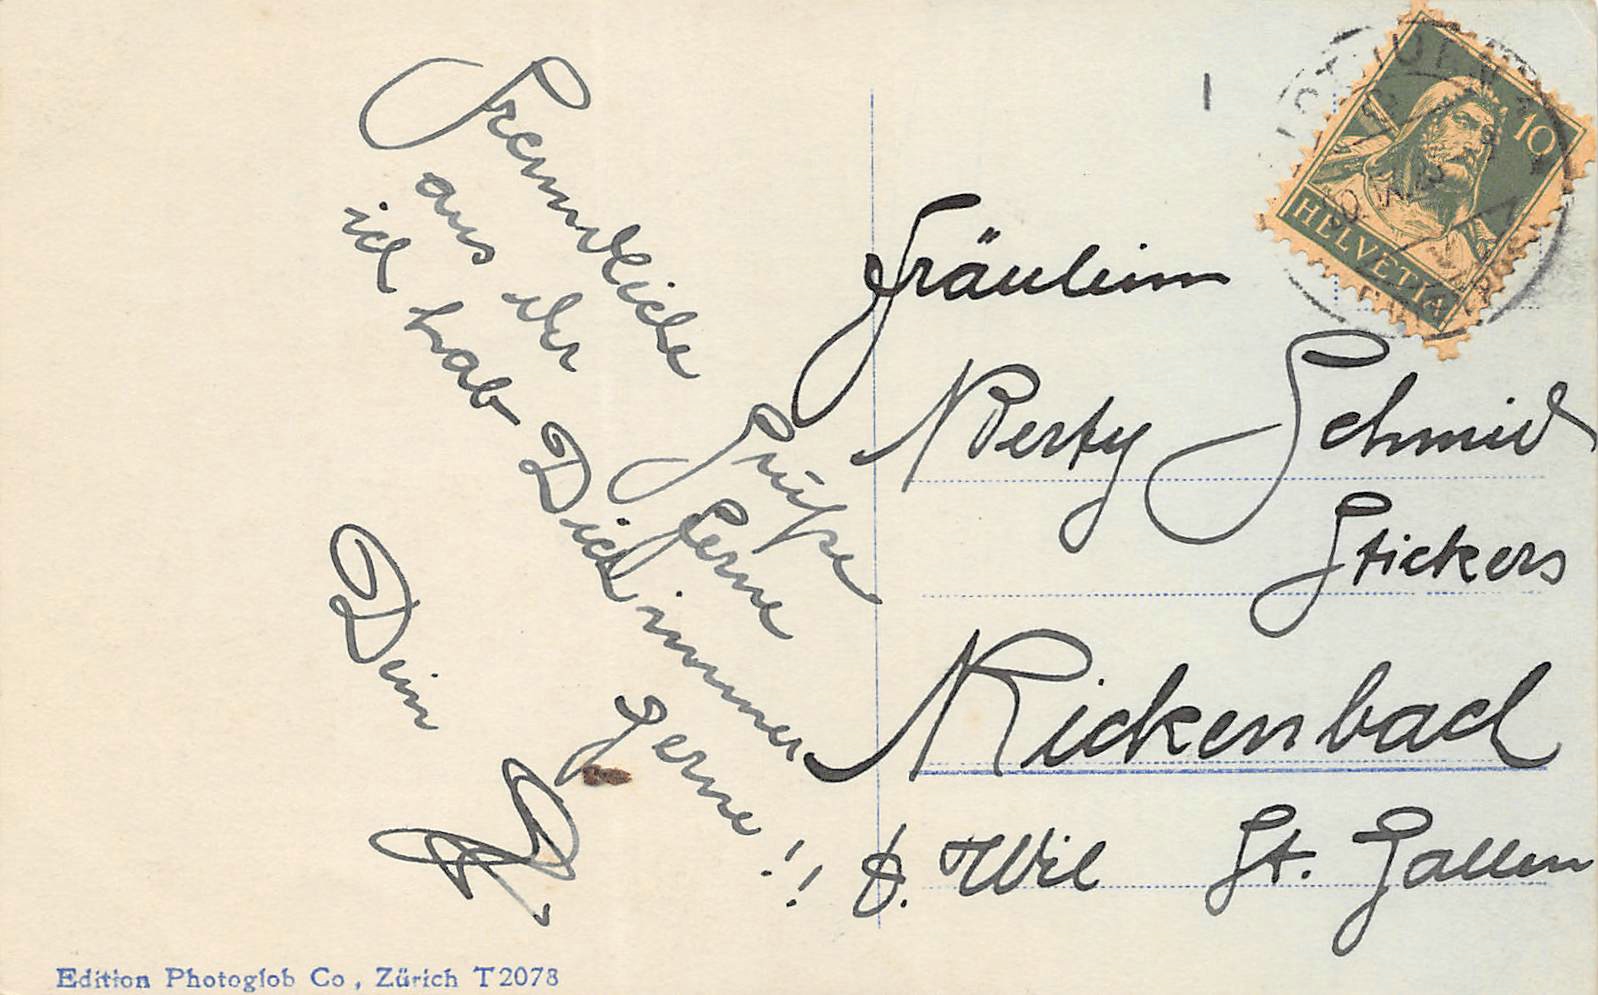 Freundliche Grüße
aus der Ferne
ich hab Dich immer
gerne!!
Dein
Fräulein
Berty Schmid
Stickers
Rickenbach
b. Wil St. Gallen
10
HELVETIA
Edition Photoglob Co, Zürich T2078